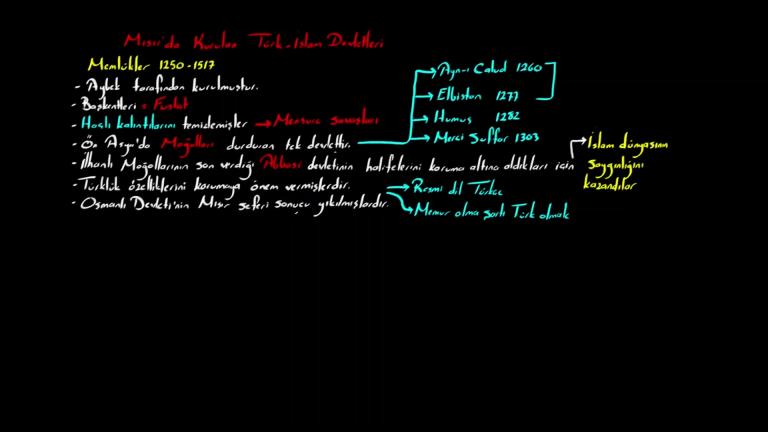 Mısır'da Kurulan Türk-İslam Devletleri
Memlükler 1250-1517
- Aybek tarafından kurulmuştur.
- Başkentleri = Fustat
- Haçlı kalıntılarını temizlemişler → Mansura savaşları
- Ön Asya'da Moğolları durduran tek devlettir.
→ Ayn-ı Calud 1260
→ Elbistan 1277
→ Humus 1282
→ Merci Suffar 1303
- İlhanlı Moğollarının son verdiği Abbasi devletinin halifelerini koruma altına aldıkları için
→ İslam dünyasının
saygınlığını
kazandılar
- Türklük özelliklerini korumaya önem vermişlerdir.
→ Resmi dil Türkçe
→ Memur olma şartı Türk olmak
- Osmanlı Devleti'nin Mısır seferi sonucu yıkılmışlardır.